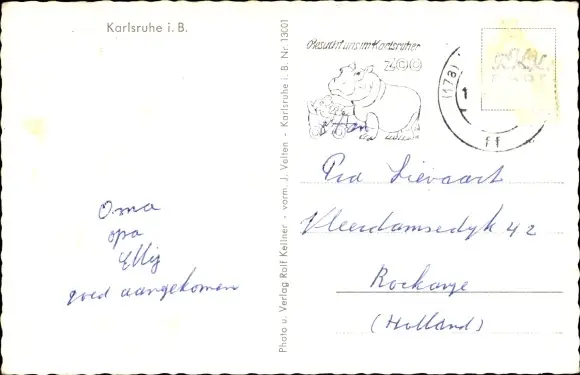 Karlsruhe i. B.
Oma
opa
Elly
goed aangekomen
Photo u. Verlag Rolf Kellner - vorm. J. Velten - Karlsruhe i. B. Nr. 13001
Besucht uns im Karlsruher
ZOO
(178)
ff
Aan
Lievaart
Vleerdamsedyk 42
Rockanje
(Holland)